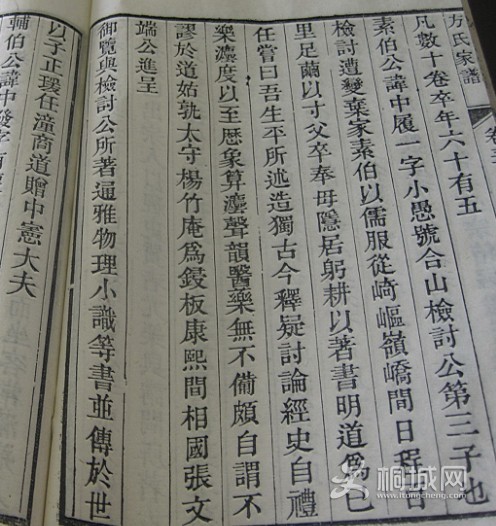 方氏家譜
凡數十卷卒年六十有五
素伯公諱中履一字小愚號合山檢討公第三子也
檢討遭變棄家素伯以儒服從崎嶇嶺嶠間日程百
里足繭以寸父卒奉母隱居躬耕以著書明道爲己
任嘗曰吾生平所述造獨古今釋疑討論經史自禮
樂灋度以至歷象算灋聲韻醫藥無不備頗自謂不
謬於道始孰太守楊竹庵爲鋟板康熙間相國張文
端公進呈
御覽與檢討公所著通雅物理小識等書並傳於世
以子正瑗任潼商道贈中憲大夫
輔伯公諱中發字
桐城网